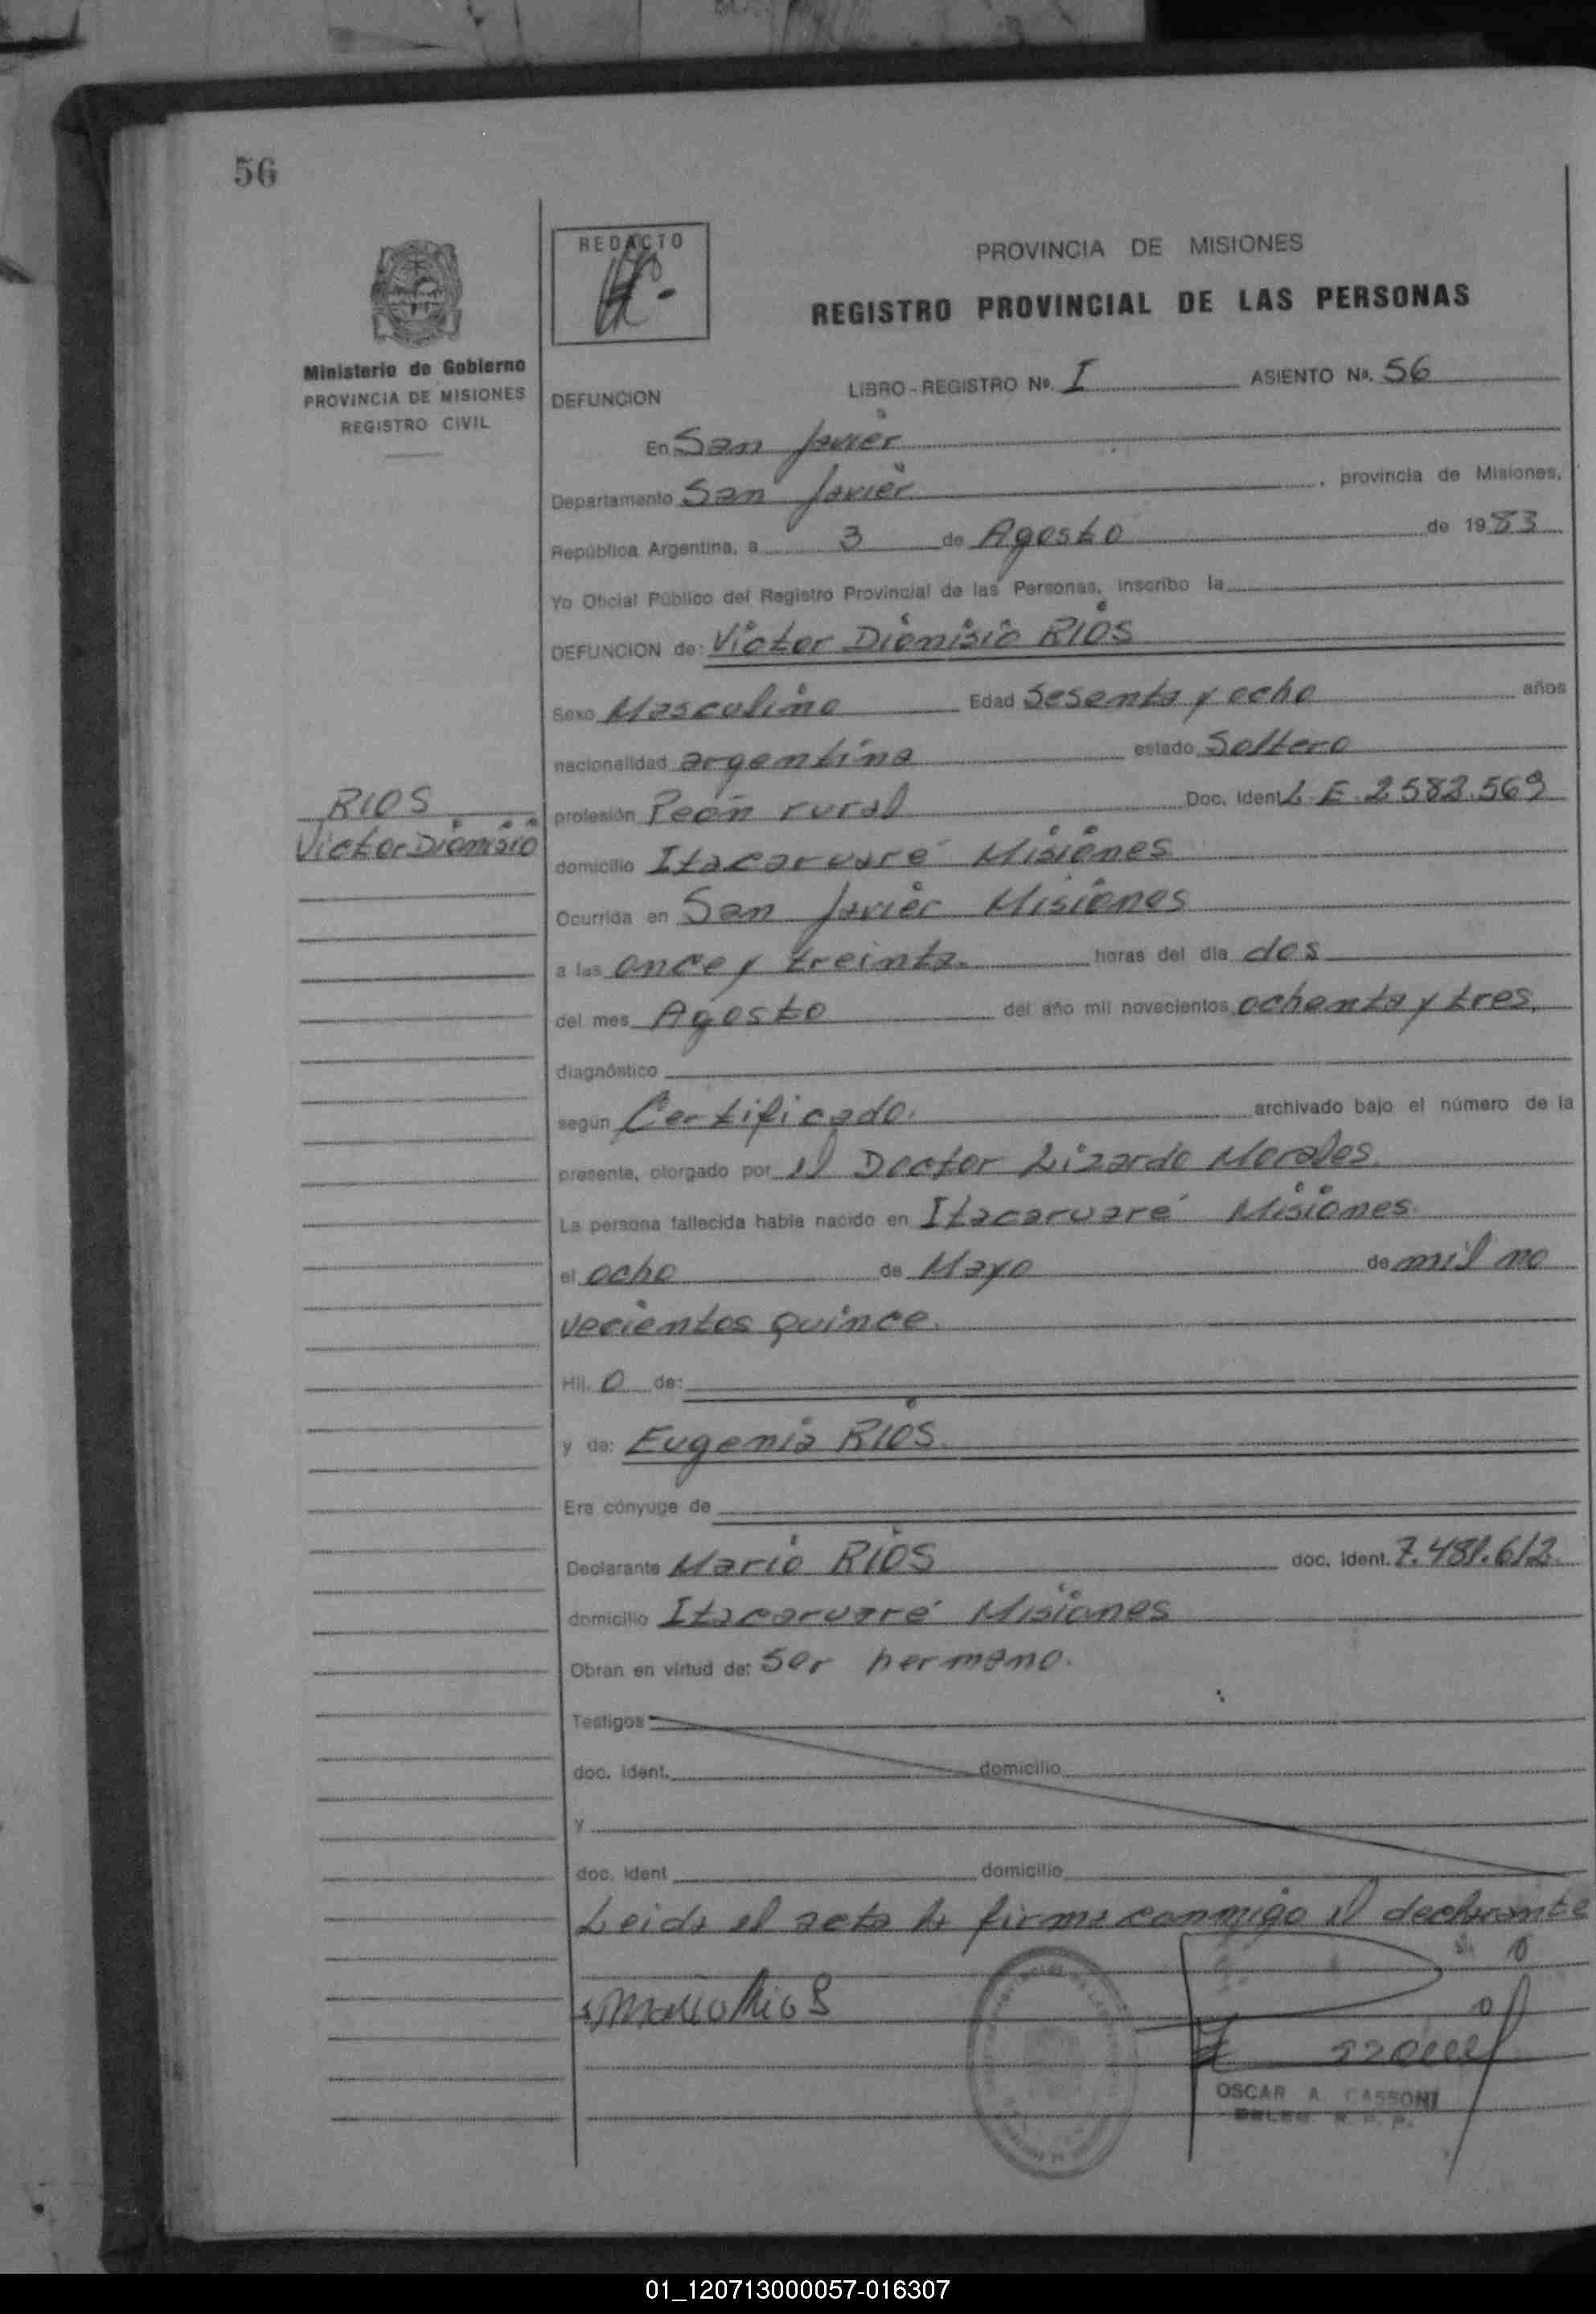 56
REDACTO
PROVINCIA DE MISIONES
REGISTRO PROVINCIAL DE LAS PERSONAS
Ministerio de Gobierno
PROVINCIA DE MISIONES
REGISTRO CIVIL
DEFUNCION LIBRO-REGISTRO Nº. I ASIENTO Nº. 56
En San Javier
Departamento San Javier, provincia de Misiones,
República Argentina, a 3 de Agosto de 1983
Yo Oficial Público del Registro Provincial de las Personas, inscribo la
DEFUNCION de: Victor Dionisio RIOS
Sexo Masculino Edad Sesenta y ocho años
nacionalidad argentina estado Soltero
RIOS
Victor Dionisio
profesión Peón rural Doc. Ident L.E. 2.582.569
domicilio Itacaruaré Misiones
Ocurrida en San Javier Misiones
a las once y treinta horas del día dos
del mes Agosto del año mil novecientos ochenta y tres,
diagnóstico
según Certificado. archivado bajo el número de la
presente, otorgado por el Doctor Lizardo Morales.
La persona fallecida había nacido en Itacaruaré Misiones
el ocho de Mayo de mil no
vecientos quince.
Hij. o de:
y de: Eugenia RIOS.
Era cónyuge de
Declarante Mario RIOS doc. ident. 7.481.612
domicilio Itacaruaré Misiones
Obran en virtud de: Ser hermano.
Testigos
doc. ident. domicilio
y
doc. ident domicilio
Leida el acta la firma conmigo el declarante
Mario Rios
OSCAR A. CASSONI
DELEG. R. P. P.
01_120713000057-016307